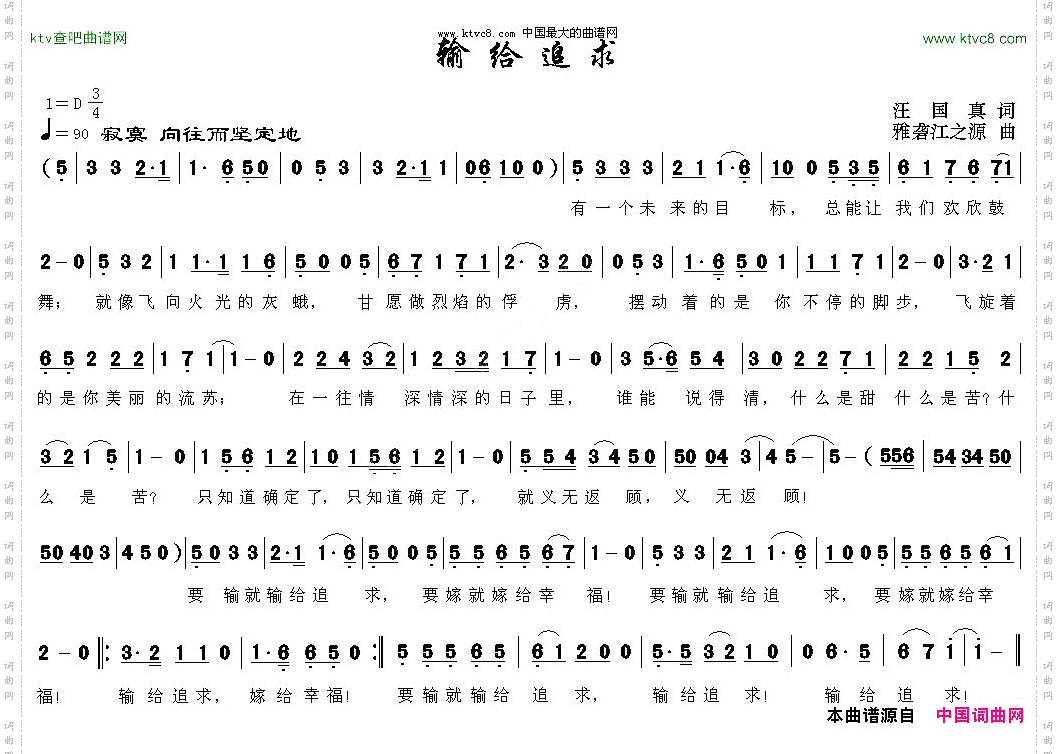 www.ktvc8.com 中国最大的曲谱网
ktv查吧曲谱网
www.ktvc8.com
输给追求
1=D 3/4
汪国真 词
♩=90 寂寞 向往而坚定地
雅砻江之源 曲
(5 | 3 3 2·1 | 1· 6 5 0 | 0 5 3 | 3 2·1 1 | 0 6 1 0 0 ) | 5 3 3 3 | 2 1 1·6 | 1 0 0 5 3 5 | 6 1 7 6 7 1 |
有一个未来的目 标， 总能让 我们欢欣鼓
2 – 0 | 5 3 2 | 1 1·1 1 6 | 5 0 0 5 | 6 7 1 7 1 | 2· 3 2 0 | 0 5 3 | 1·6 5 0 1 | 1 1 7 1 | 2 – 0 | 3·2 1 |
舞； 就像飞向火光的灰蛾， 甘愿做烈焰的俘 虏， 摆动着的是 你不停的脚步， 飞旋着
6 5 2 2 2 | 1 7 1 | 1 – 0 | 2 2 4 3 2 | 1 2 3 2 1 7 | 1 – 0 | 3 5·6 5 4 | 3 0 2 2 7 1 | 2 2 1 5 2 |
的是你美丽的流苏； 在一往情 深情深的日子里， 谁能 说得 清， 什么是甜 什么是苦？什
3 2 1 5 | 1 – 0 | 1 5 6 1 2 | 1 0 1 5 6 1 2 | 1 – 0 | 5 5 4 3 4 5 0 | 5 0 0 4 3 | 4 5 – | 5 – ( 5 5 6 | 5 4 3 4 5 0 |
么 是 苦？ 只知道确定了，只知道确定了， 就义无返 顾， 义 无返 顾！
5 0 4 0 3 | 4 5 0 ) | 5 0 3 3 | 2·1 1·6 | 5 0 0 5 | 5 5 6 5 6 7 | 1 – 0 | 5 3 3 | 2 1 1·6 | 1 0 0 5 | 5 5 6 5 6 1 |
要 输就输给追 求， 要嫁就嫁给幸 福！ 要输就输给追 求， 要嫁就嫁给幸
2 – 0 ‖: 3·2 1 1 0 | 1·6 6 5 0 :‖ 5 5 5 6 5 | 6 1 2 0 0 | 5·5 3 2 1 0 | 0 6· 5 | 6 7 1 | 1 – ‖
福！ 输给追求， 嫁给幸福！ 要输就输给 追 求， 输给追 求！ 输 给 追 求！
本曲谱源自 中国词曲网